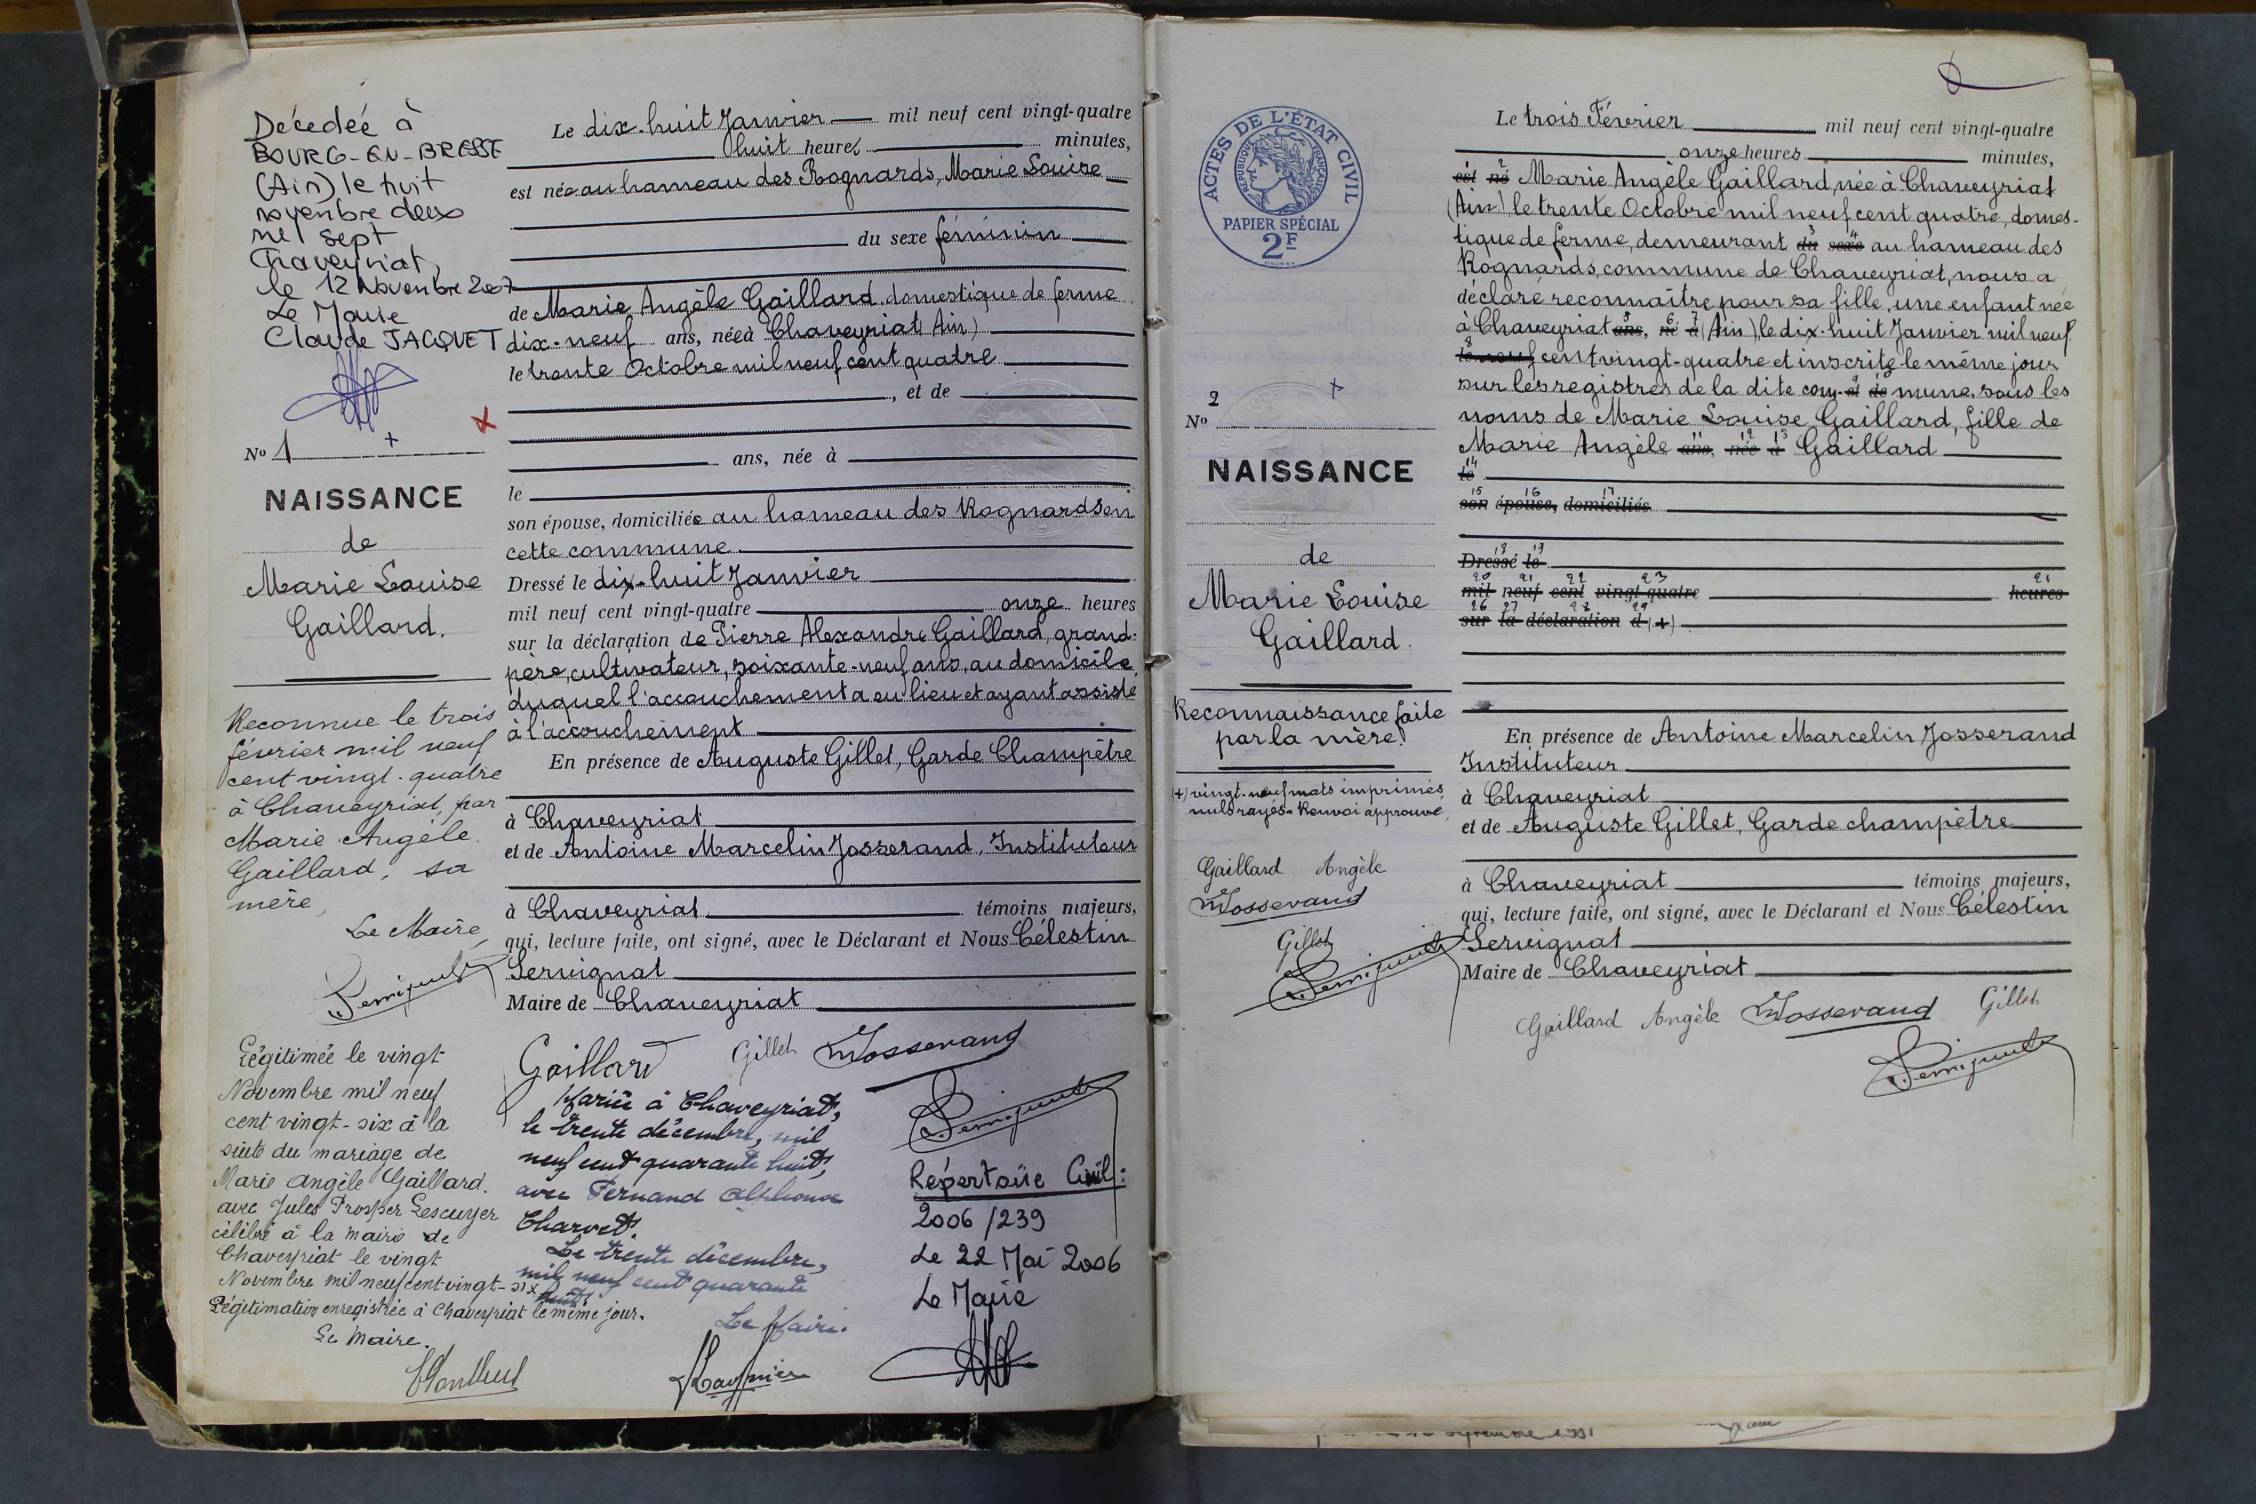 Décédée à
BOURG-EN-BRESSE
(Ain) le huit
novembre deux
mil sept
Chaveyriat,
le 12 Novembre 2007
Le Maire
Claude JACQUET
No 1
NAISSANCE
de
Marie Louise
Gaillard.
Reconnue le trois
février mil neuf
cent vingt-quatre
à Chaveyriat, par
Marie Angèle
Gaillard, sa
mère,
Le Maire,
Légitimée le vingt
Novembre mil neuf
cent vingt-six à la
suite du mariage de
Marie Angèle Gaillard.
avec Jules Prosper Lescuyer
célébré à la mairie de
Chaveyriat le vingt
Novembre mil neuf cent vingt-six
Légitimation enregistrée à Chaveyriat le même jour.
Le Maire.
Le dix-huit Janvier mil neuf cent vingt-quatre
huit heures minutes,
est née au hameau des Rognards, Marie Louise
du sexe féminin
de Marie Angèle Gaillard domestique de ferme
dix-neuf ans, née à Chaveyriat (Ain)
le trente Octobre mil neuf cent quatre
, et de
ans, née à
le
son épouse, domiciliée au hameau des Rognards en
cette commune
Dressé le dix-huit Janvier
mil neuf cent vingt-quatre onze heures
sur la déclaration de Pierre Alexandre Gaillard, grand-
père, cultivateur, soixante-neuf ans, au domicile
duquel l'accouchement a eu lieu et ayant assisté
à l'accouchement
En présence de Auguste Gillet, Garde Champêtre
à Chaveyriat
et de Antoine Marcelin Josserand, Instituteur
à Chaveyriat témoins majeurs,
qui, lecture faite, ont signé, avec le Déclarant et Nous Célestin
Servignat
Maire de Chaveyriat
Gaillard Gillet Josserand
Mariée à Chaveyriat,
le trente décembre, mil
neuf cent quarante huit,
avec Fernand Alphonse
Charvet.
Le trente décembre,
mil neuf cent quarante
huit.
Le Maire.
Répertoire Civil:
2006/239
Le 22 Mai 2006
Le Maire
ACTES DE L'ÉTAT CIVIL
RÉPUBLIQUE FRANÇAISE
PAPIER SPÉCIAL
2F
No 2
NAISSANCE
de
Marie Louise
Gaillard.
Reconnaissance faite
par la mère.
(+) vingt-neuf mots imprimés
nuls rayés. Renvoi approuvé.
Gaillard Angèle
Josserand
Gillet
Le trois Février mil neuf cent vingt-quatre
onze heures minutes,
est né Marie Angèle Gaillard, née à Chaveyriat
(Ain) le trente Octobre mil neuf cent quatre, domes-
tique de ferme, demeurant du sexe au hameau des
Rognards, commune de Chaveyriat, nous a
déclaré reconnaître pour sa fille, une enfant née
à Chaveyriat ans, né à (Ain), le dix-huit Janvier mil neuf
le neuf cent vingt-quatre et inscrite le même jour
sur les registres de la dite com- et de mune, sous les
noms de Marie Louise Gaillard, fille de
Marie Angèle ans, née à Gaillard
le
son épouse, domiciliés
Dressé le
mil neuf cent vingt-quatre heures
sur la déclaration d (+)
En présence de Antoine Marcelin Josserand
Instituteur
à Chaveyriat
et de Auguste Gillet, Garde champêtre
à Chaveyriat témoins majeurs,
qui, lecture faite, ont signé, avec le Déclarant et Nous Célestin
Servignat
Maire de Chaveyriat
Gaillard Angèle Josserand Gillet